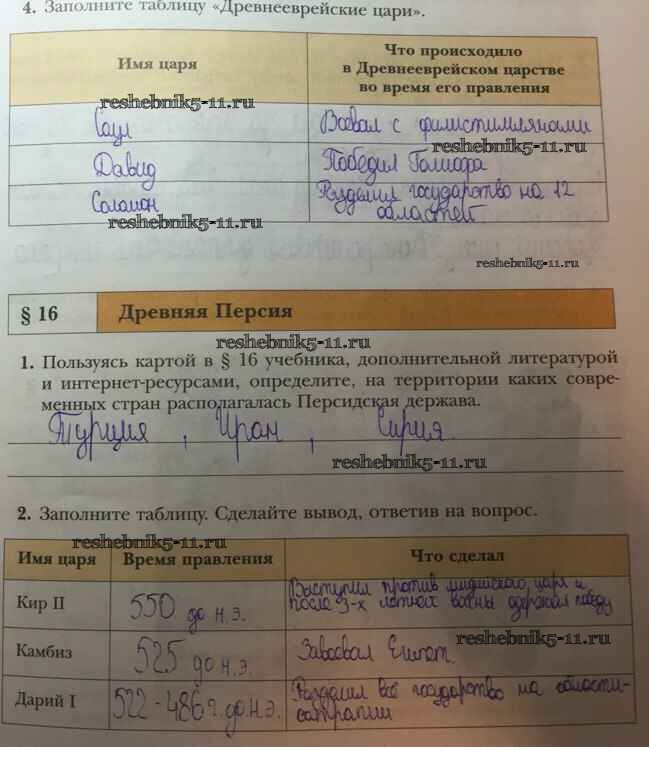 4. Заполните таблицу «Древнееврейские цари».
Имя царя
Что происходило
в Древнееврейском царстве
во время его правления
reshebnik5-11.ru
Саул
Воевал с филистимлянами
reshebnik5-11.ru
Давид
Победил Голиафа
Соломон
Разделил государство на 12
областей
reshebnik5-11.ru
reshebnik5-11.ru
§ 16
Древняя Персия
reshebnik5-11.ru
1. Пользуясь картой в § 16 учебника, дополнительной литературой
и интернет-ресурсами, определите, на территории каких совре-
менных стран располагалась Персидская держава.
Турция, Иран, Сирия.
reshebnik5-11.ru
2. Заполните таблицу. Сделайте вывод, ответив на вопрос.
reshebnik5-11.ru
Имя царя
Время правления
Что сделал
Кир II
550 до н.э.
Выступил против мидийского царя и
после 3-х летней войны одержал победу
reshebnik5-11.ru
Камбиз
525 до н.э.
Завоевал Египет.
Дарий I
522-486 г. до н.э.
Разделил всё государство на области-
сатрапии